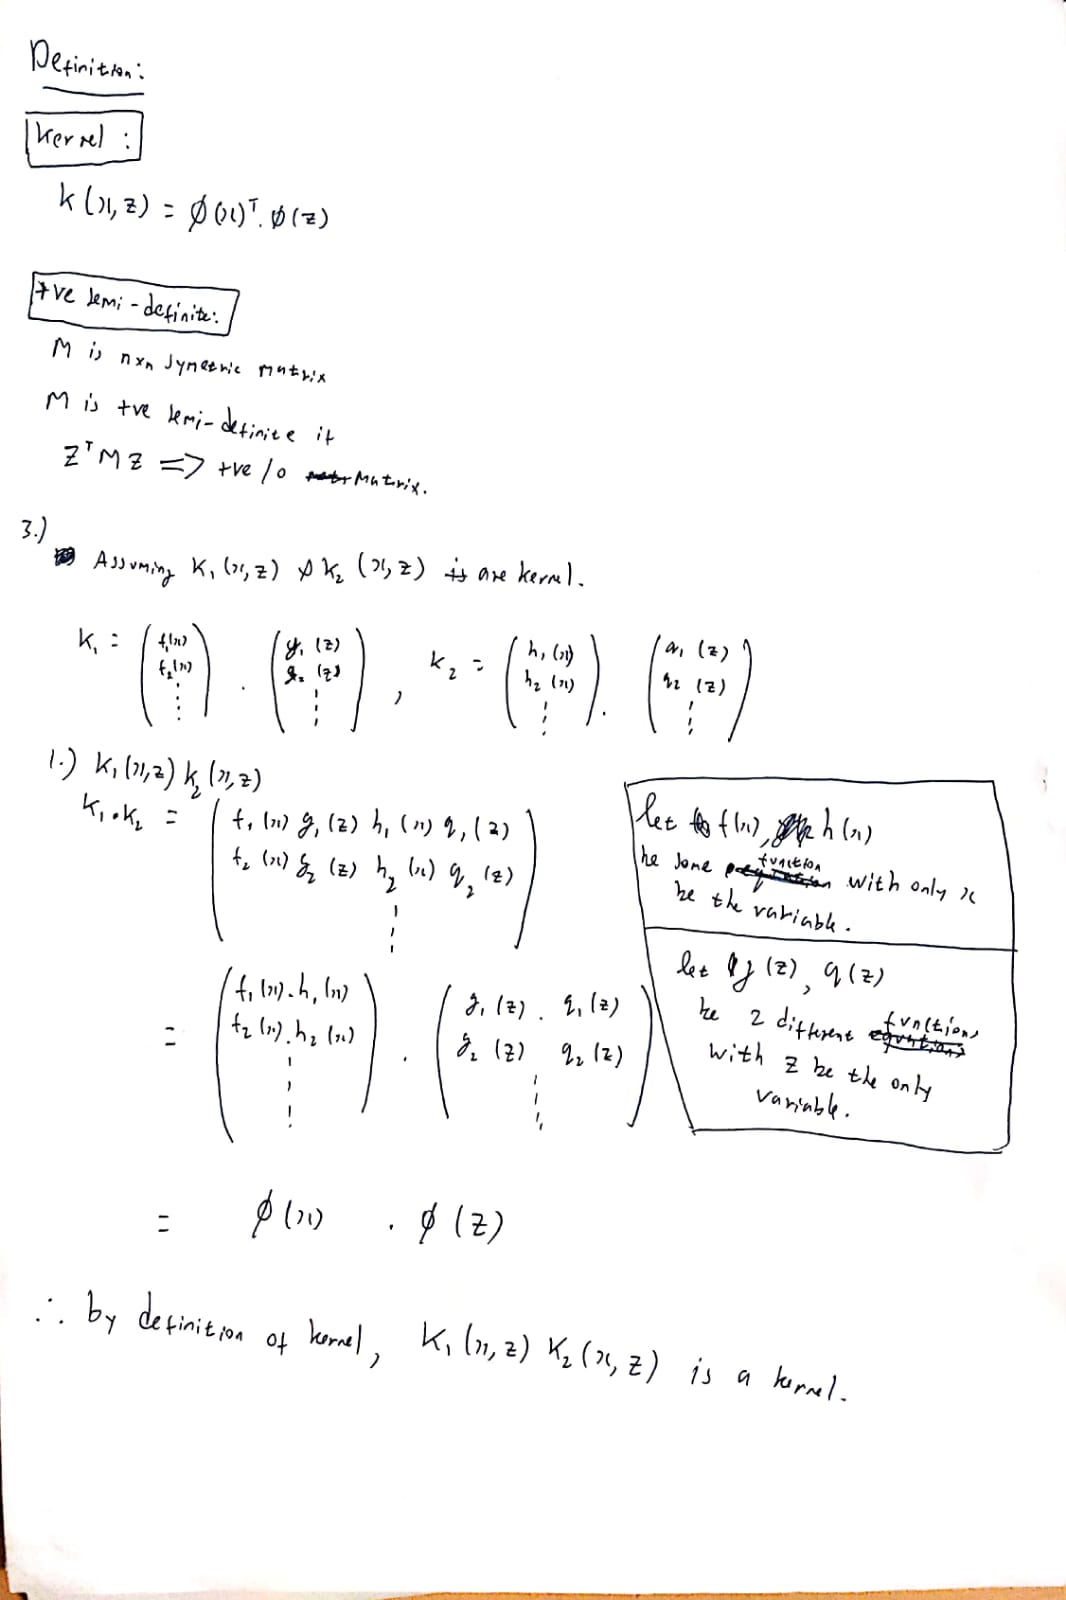 Definition:
Kernel :
k(x, z) = ϕ(x)ᵀ. ϕ(z)
+ve semi-definite:
M is nxn symetric matrix
M is +ve semi-definite if
Zᵀ M Z => +ve / 0 Matrix.
3.)
Assuming K₁(x, z) & K₂(x, z) are kernel.
K₁ = ( f₁(x) f₂(x) ⋮ ) . ( g₁(z) g₂(z) ⋮ ) , K₂ = ( h₁(x) h₂(x) ⋮ ) . ( q₁(z) q₂(z) ⋮ )
1.) K₁(x,z) K₂(x,z)
K₁ • K₂ = ( f₁(x) g₁(z) h₁(x) q₁(z)
f₂(x) g₂(z) h₂(x) q₂(z)
⋮ )
let f(x), h(x)
be some function with only x
be the variable.
let g(z), q(z)
be 2 different functions
with z be the only
variable.
= ( f₁(x). h₁(x) f₂(x). h₂(x) ⋮ ) . ( g₁(z) . q₁(z) g₂(z) q₂(z) ⋮ )
= ϕ(x) . ϕ(z)
∴ by definition of kernel, K₁(x, z) K₂(x, z) is a kernel.